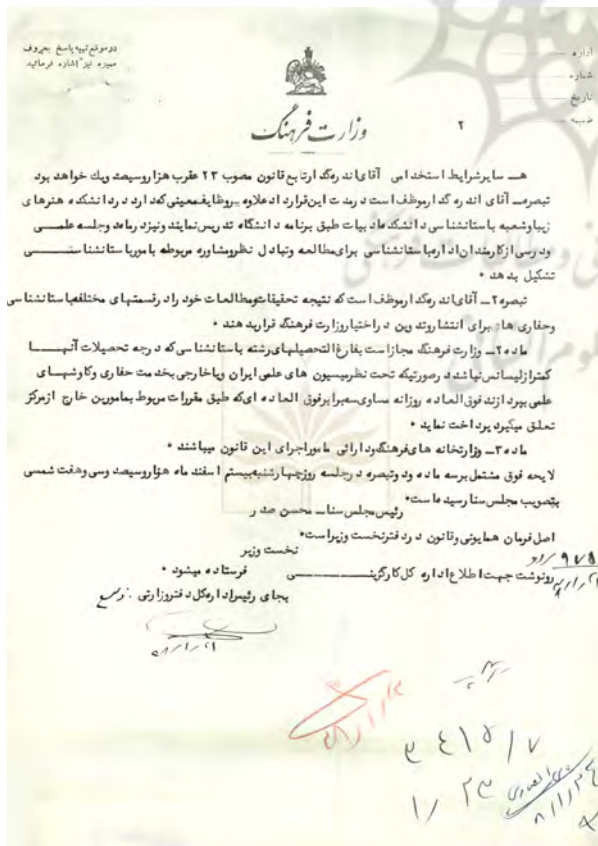 در موقع تهیه پاسخ بحروف
ممیزه نیز اشاره فرمائید
اداره
شماره
تاریخ
ضمیمه
وزارت فرهنگ
۲
هـ سایر شرایط استخدامی آقای اندره گدار تابع قانون مصوب ۲۳ عقرب هزار و سیصد و یک خواهد بود
تبصره ـ آقای اندره گدار موظف است در مدت این قرارداد علاوه بر وظایف معینی که دارد در دانشکده هنرهای
زیبا و شعبه باستانشناسی دانشکده ادبیات طبق برنامه دانشگاه تدریس نمایند و نیز در ماه دو جلسه علمــی
و درسی از کارمندان اداره باستانشناسی برای مطالعه و تبادل نظر و مشاوره مربوطه بامور باستانشناســی
تشکیل بدهد ۰
تبصره ۲ ـ آقای اندره گدار موظف است که نتیجه تحقیقات و مطالعات خود را در قسمتهای مختلفه باستانشناسی
و حفاری ها برای انتشار و تدوین در اختیار وزارت فرهنگ قرار بدهند ۰
ماده ۲ ـ وزارت فرهنگ مجاز است بفارغ التحصیلهای رشته باستانشناسی که درجه تحصیلات آنهــا
کمتر از لیسانس نباشد در صورتیکه تحت نظر میسیون های علمی ایران و یا خارجی بخدمت حفاری و کاوشهــای
علمی بپردازند فوق العاده روزانه مساوی سه برابر فوق العاده ای که طبق مقررات مربوط بمامورین خارج از مرکز
تعلق میگیرد پرداخت نماید ۰
ماده ۳ ـ وزارتخانه های فرهنگ و دارائی مامور اجرای این قانون میباشند ۰
لایحه فوق مشتمل بر سه ماده و دو تبصره در جلسه روز چهارشنبه بیستم اسفند ماه هزار و سیصد و سی و هفت شمسی
بتصویب مجلس سنا رسیده است۰
رئیس مجلس سنا ـ محسن صدر
اصل فرمان همایونی و قانون در دفتر نخست وزیر است۰
نخست وزیر
۹۷۵
رونوشت جهت اطلاع اداره کل کارگزینــــی فرستاده میشود ۰
بجای رئیس اداره کل دفتر وزارتی